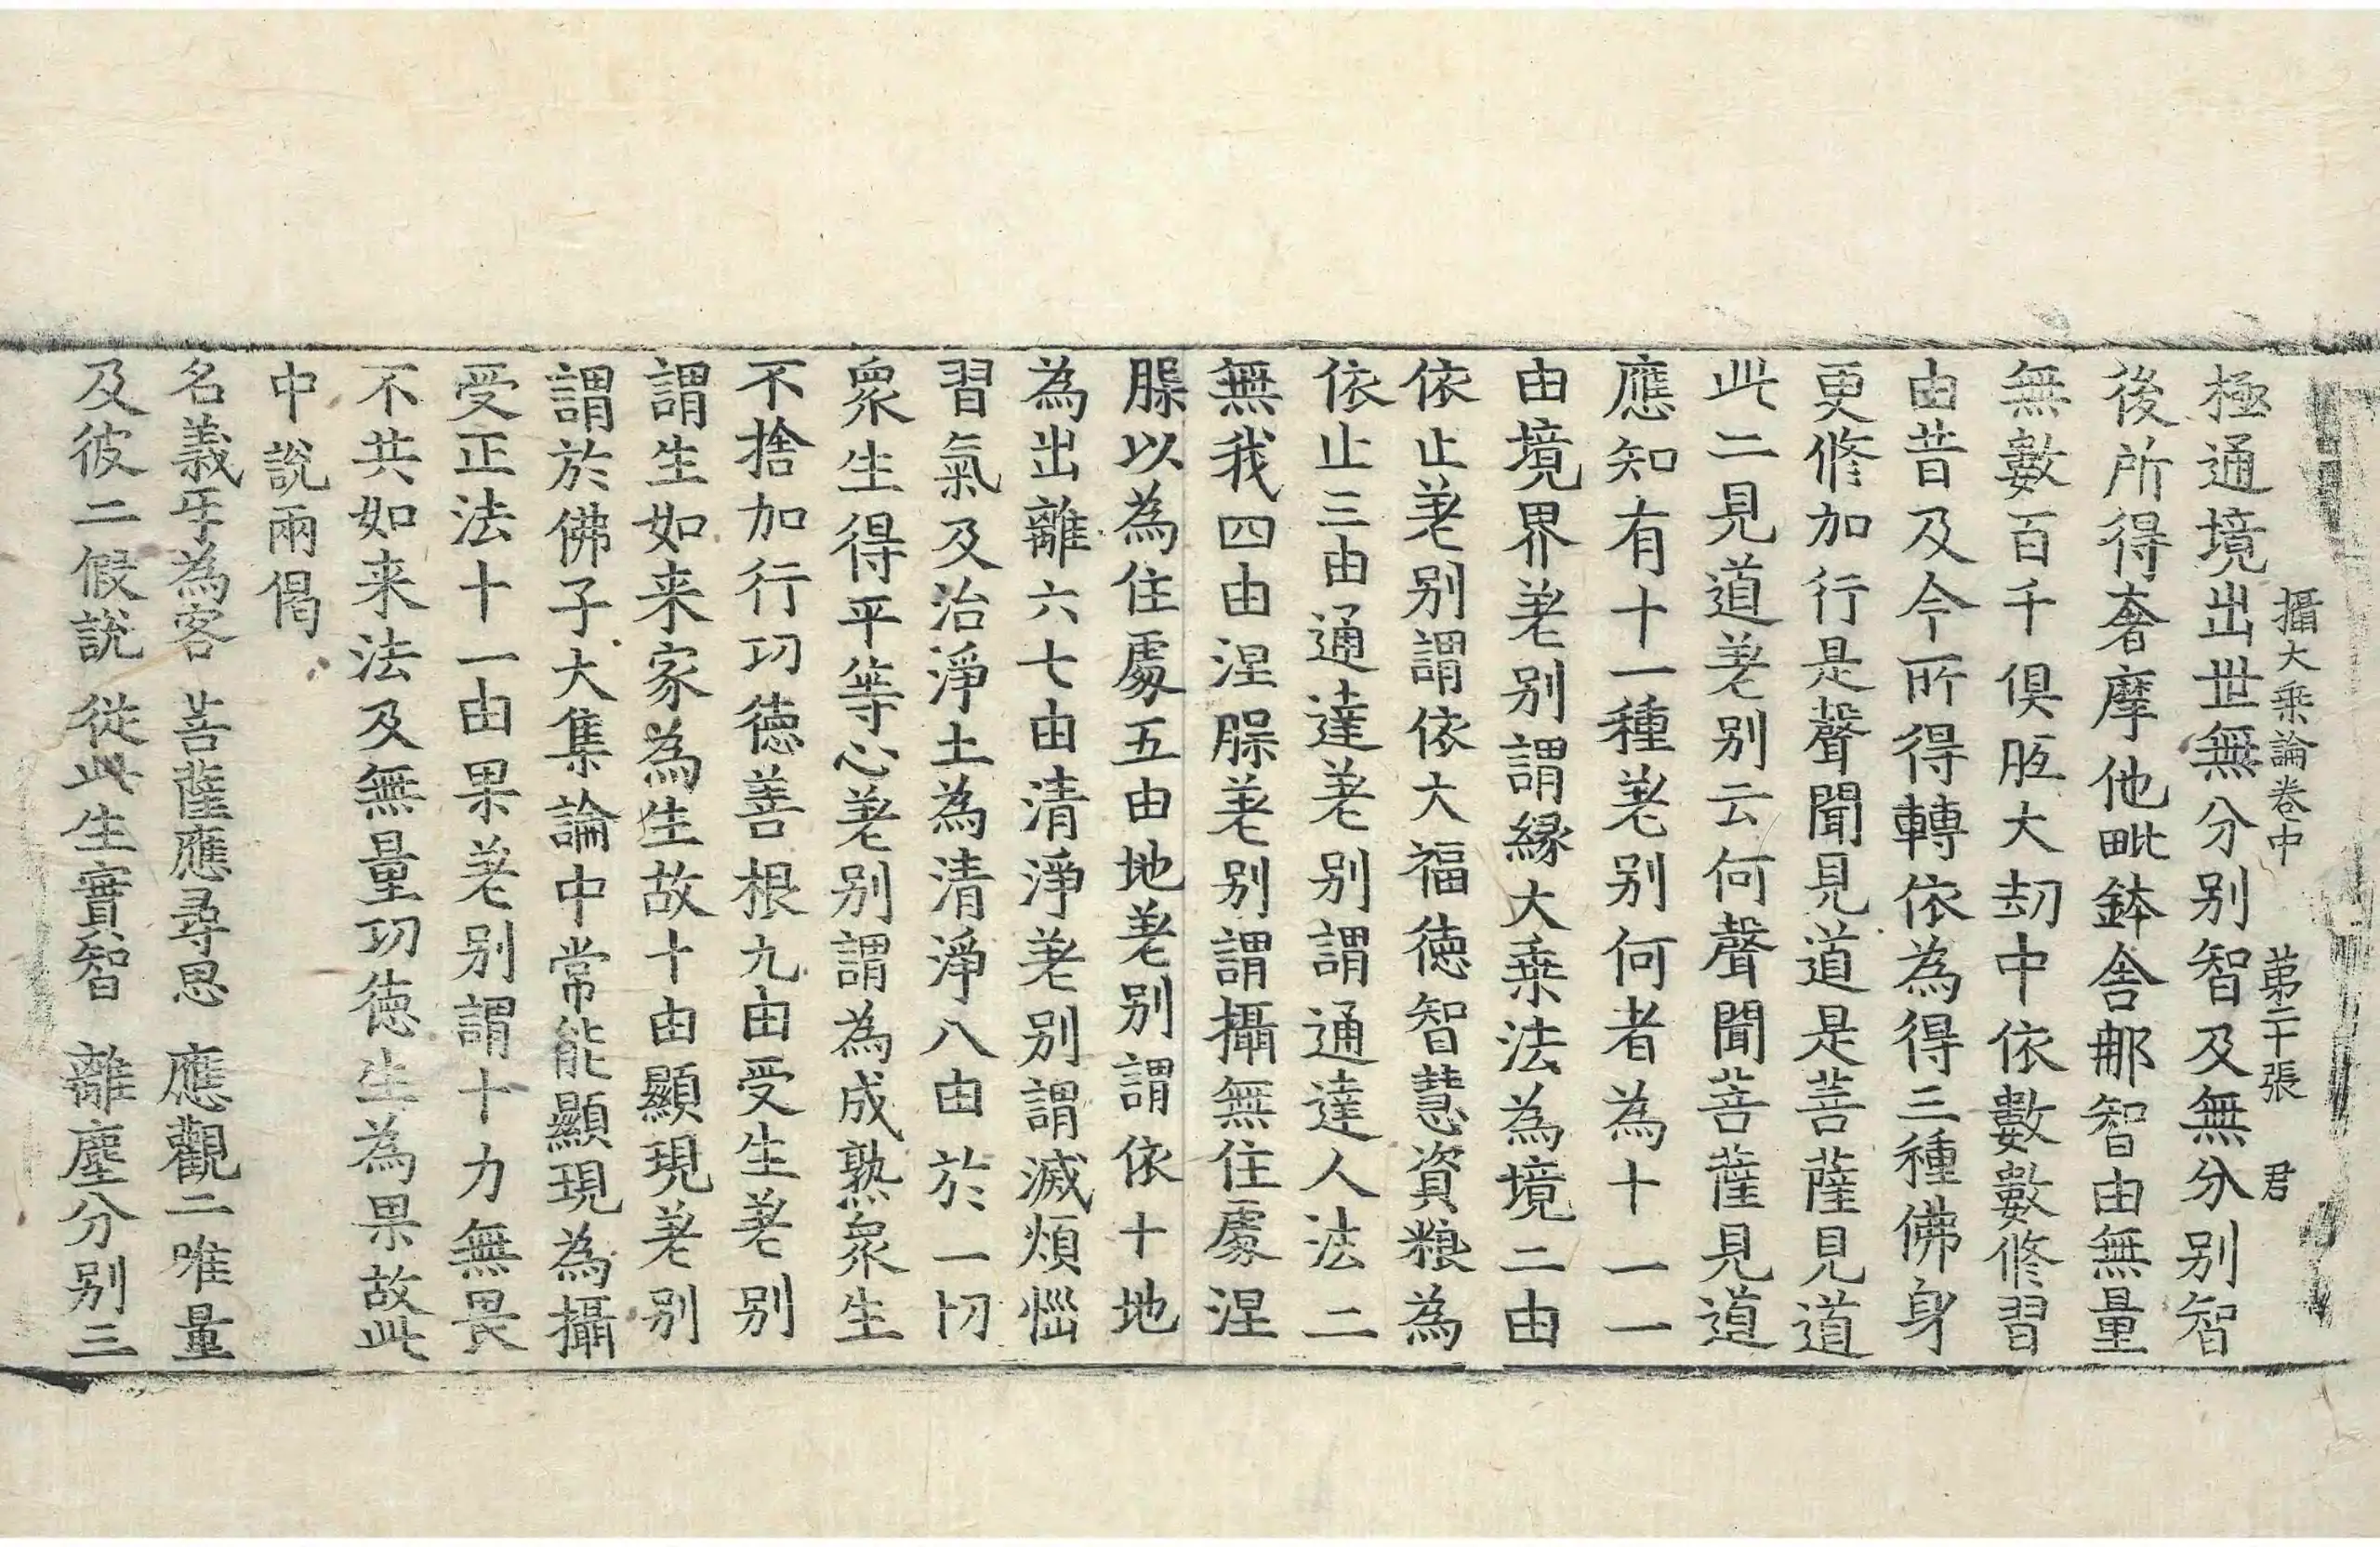 攝大乘論卷中　第二十張　君
極通境出世無分别智及無分别智
後所得奢摩他毗鉢舍那智由無量
無數百千俱胝大劫中依數數修習
由昔及今所得轉依為得三種佛身
更修加行是聲聞見道是菩薩見道
此二見道差别云何聲聞菩薩見道
應知有十一種差别何者為十一一
由境界差别謂緣大乗法為境二由
依止差别謂依大福德智慧資粮為
依止三由通達差别謂通達人法二
無我四由涅槃差别謂攝無住處涅
槃以為住處五由地差别謂依十地
為出離六七由清淨差别謂滅煩惱
習氣及治淨土為清淨八由於一切
衆生得平等心差别謂為成熟衆生
不捨加行功德善根九由受生差别
謂生如来家為生故十由顯現差别
謂於佛子大集論中常能顯現為攝
受正法十一由果差别謂十力無畏
不共如来法及無量功德生為果故此
中說兩偈
名義互為客　菩薩應尋思　應觀二唯量
及彼二假說　從此生實智　離塵分别三